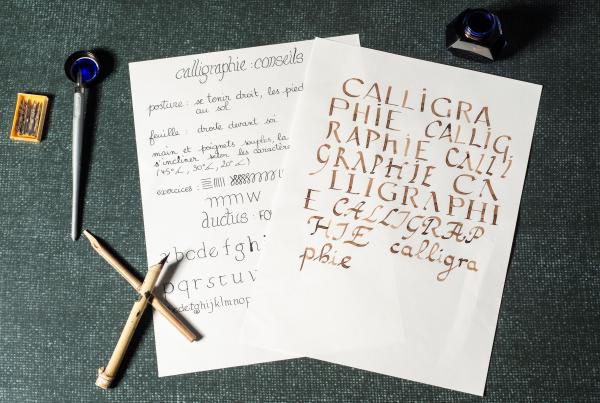 calligraphie : conseils
posture : se tenir droit, les pied
au sol
feuille : droite devant soi
main et poignets souples, la
s'incliner selon les caractère
(45°∠, 30°∠, 20°∠)
exercices :
mmw
ductus : FO
abcdefgh
pqrstuv
abcdefghijklmnop
CALLiGRA
PHiE CALLiG
RAPHiE CALLi
GRAPHiE CA
LLIGRAPHI
E CALLIGRAP
HIE calligra
phie